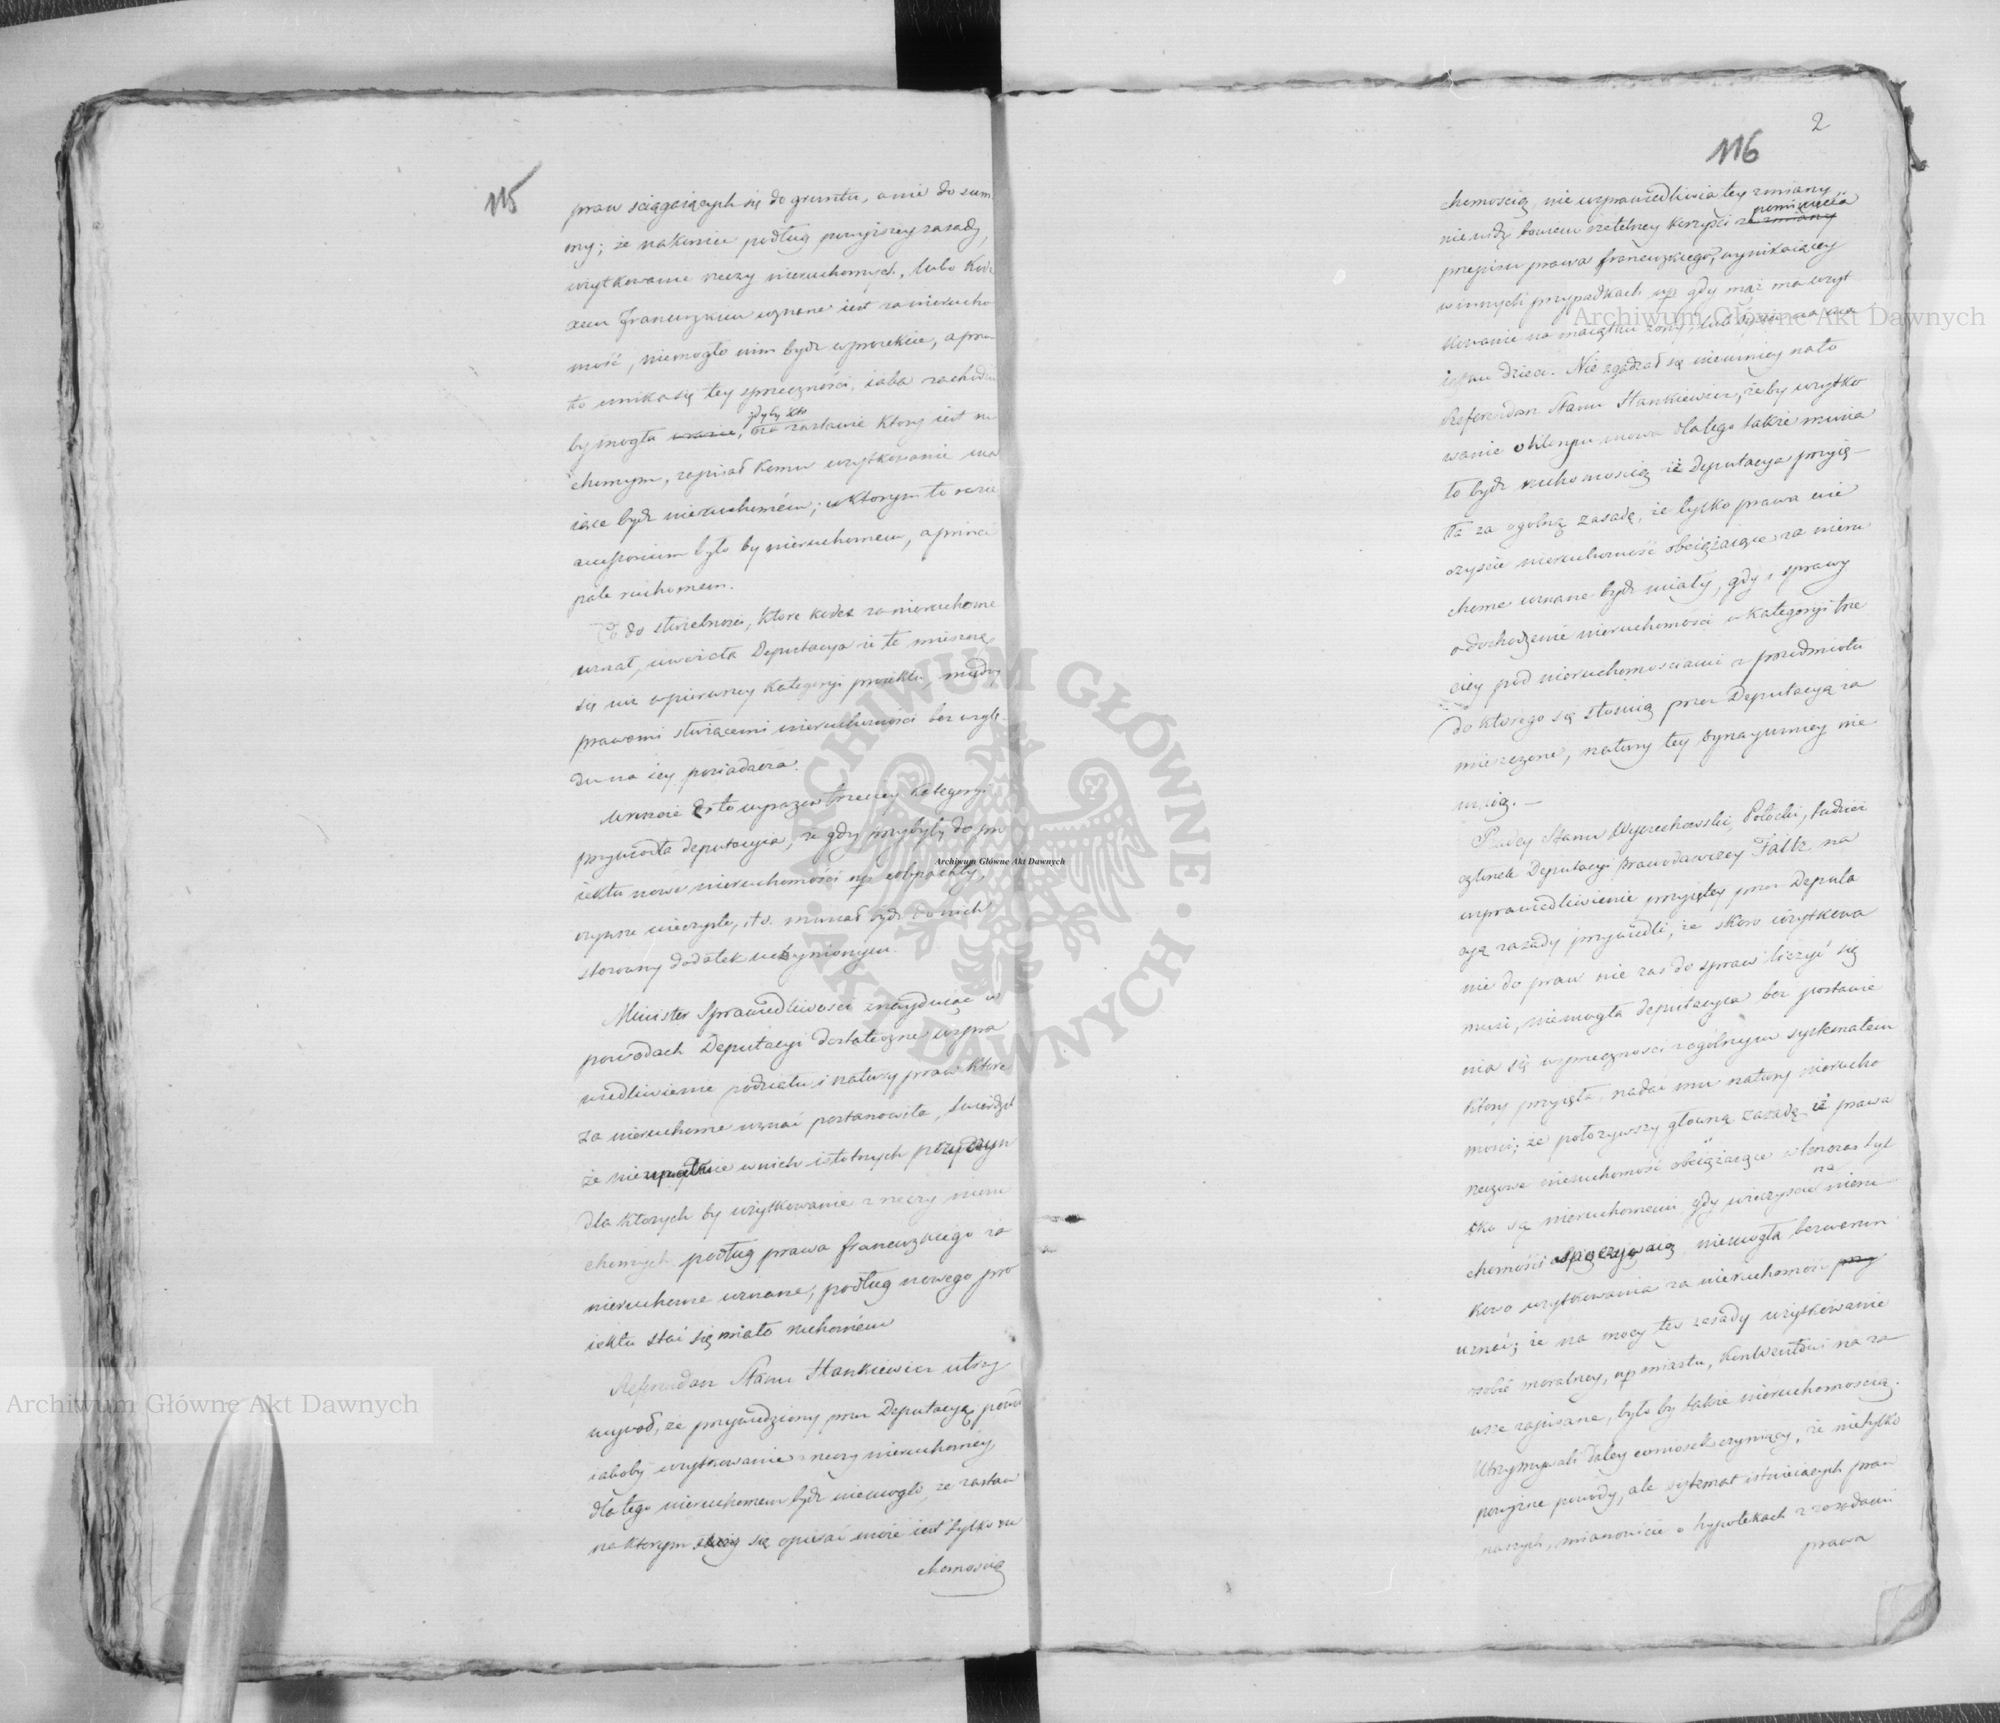 115
praw sciągaiących się do gruntu, a nie do sum
my; że nakoniec podług powyższey zasady,
użytkowanie rzeczy nieruchomych, lubo Kode
xem Francuzkim uznane iest za nierucho
mość, niemogło nim bydź w proiekcie, a przez
to unika się tey sprzeczności, iaka zachodzić
by mogła w razie, gdyby kto na zastawie który iest ru
chomym, zapisał komu użytkowanie ma
iące bydź nieruchomém; w którym to razie
accessorium było by nieruchomem, a princi
pale ruchomem.
Co do służebności, które kodex za nieruchome
uznał, uważała Deputacya że te mieszczą
się iuż w pierwszey kategoryi proiektu, między
prawami służącemi nieruchomości bez wzglę
du na iey posiadacza.
Wreszcie co do wyrazów trzeciey kategoryi
przywiodła deputacya, że gdy przybyły do pro
iektu nowe nieruchomości np. kopalnie,
czynsze wieczyste, it.d. musiał bydź do nich
stosowny dodatek uczynionym.
Minister Sprawiedliwości znayduiąc w
powodach Deputacyi dostateczne uspra
wiedliwienie podziału i natury praw które
za nieruchome uznać postanowiła, twierdził
że nie w nich istotnych przyczyn
dla których by użytkowanie z rzeczy nieru
chomych podług prawa francuzkiego za
nieruchome uznane, podług nowego pro
iektu stać się miało ruchomém
Referendarz Stanu Stankiewicz utrzy
mywał, że przywiedziony przez Deputacyą powód
iakoby użytkowanie z rzeczy nieruchoméy
dla tego nieruchomem bydź niemogło, że zastaw
na którym się opisać może iest tylko ru
chomością
2
116
chomością, nie usprawiedliwia tey zmiany,
nie widzi bowiem rzetelney korzyści z pominięcia za zmiany
przepisu prawa francuzkiego, wynikaiącey
w innych przypadkach np. gdy mąż ma użyt
kowanie na maiątku żony, lub oyciec na ma
iątku dzieci. Nie zgadzał się niemniey na to
Referendarz Stanu Stankiewicz, żeby użytko
wanie o którym mowa dlatego także musia
ło bydź ruchomością iż Deputacya przyię
ła za ogólną zasadę, że tylko prawa wie
czyście nieruchomość obciążaiące za nieru
chome uznane bydź miały, gdy i sprawy
o dochodzenie nieruchomości w kategoryi trze
ciey pod nieruchomościami z przedmiotu
do którego się stosuią przez Deputacyą za
mieszczone, natury tey bynaymniey nie
maią.
Radcy Stanu Wyczechowski, Potocki, tudzież
członek Deputacyi Prawodawczey Faltz na
usprawiedliwienie przyiętey przez Deputa
cyą zasady przywiedli, że skoro użytkowa
nie do praw nie zaś do spraw liczyć się
musi, niemogła deputacya bez postawie
nia się w sprzeczności z ogólnym systematem
który przyięła, nadać mu natury nierucho
mości; że położywszy główną zasadę iż prawa
rzeczowe nieruchomość obciążaiące w tenczas tyl
ko są nieruchomemi, gdy wieczyście na nieru
chomości spoczywaią, niemogła bezwarun
kowo użytkowania za nieruchomość przy
uznać; że na mocy tey zasady użytkowanie
osobie moralney, np. miastu, konwentowi na za
wsze zapisane, było by także nieruchomością.
Utrzymywali daley wniosek czyniący, że nietylko
powyższe powody, ale systemat istnieiących praw
naszych, mianowicie o hypotekach z zasadami
prawa
Archiwum Główne Akt Dawnych
Archiwum Główne Akt Dawnych
Archiwum Główne Akt Dawnych
ARCHIWUM GŁÓWNE AKT DAWNYCH